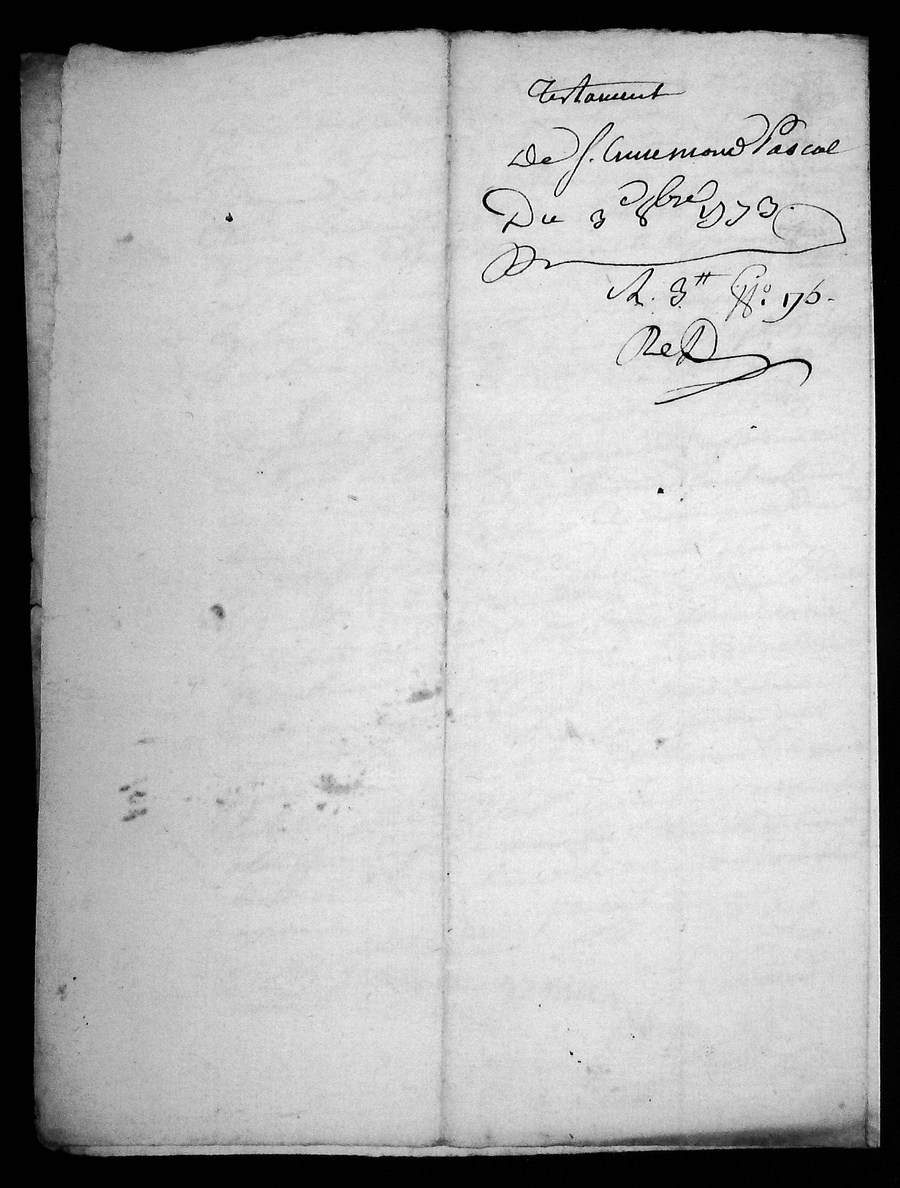 Testament
De S. Annemond Pascal
Du 3 8bre 1773
R. 3 tt N.o 176.